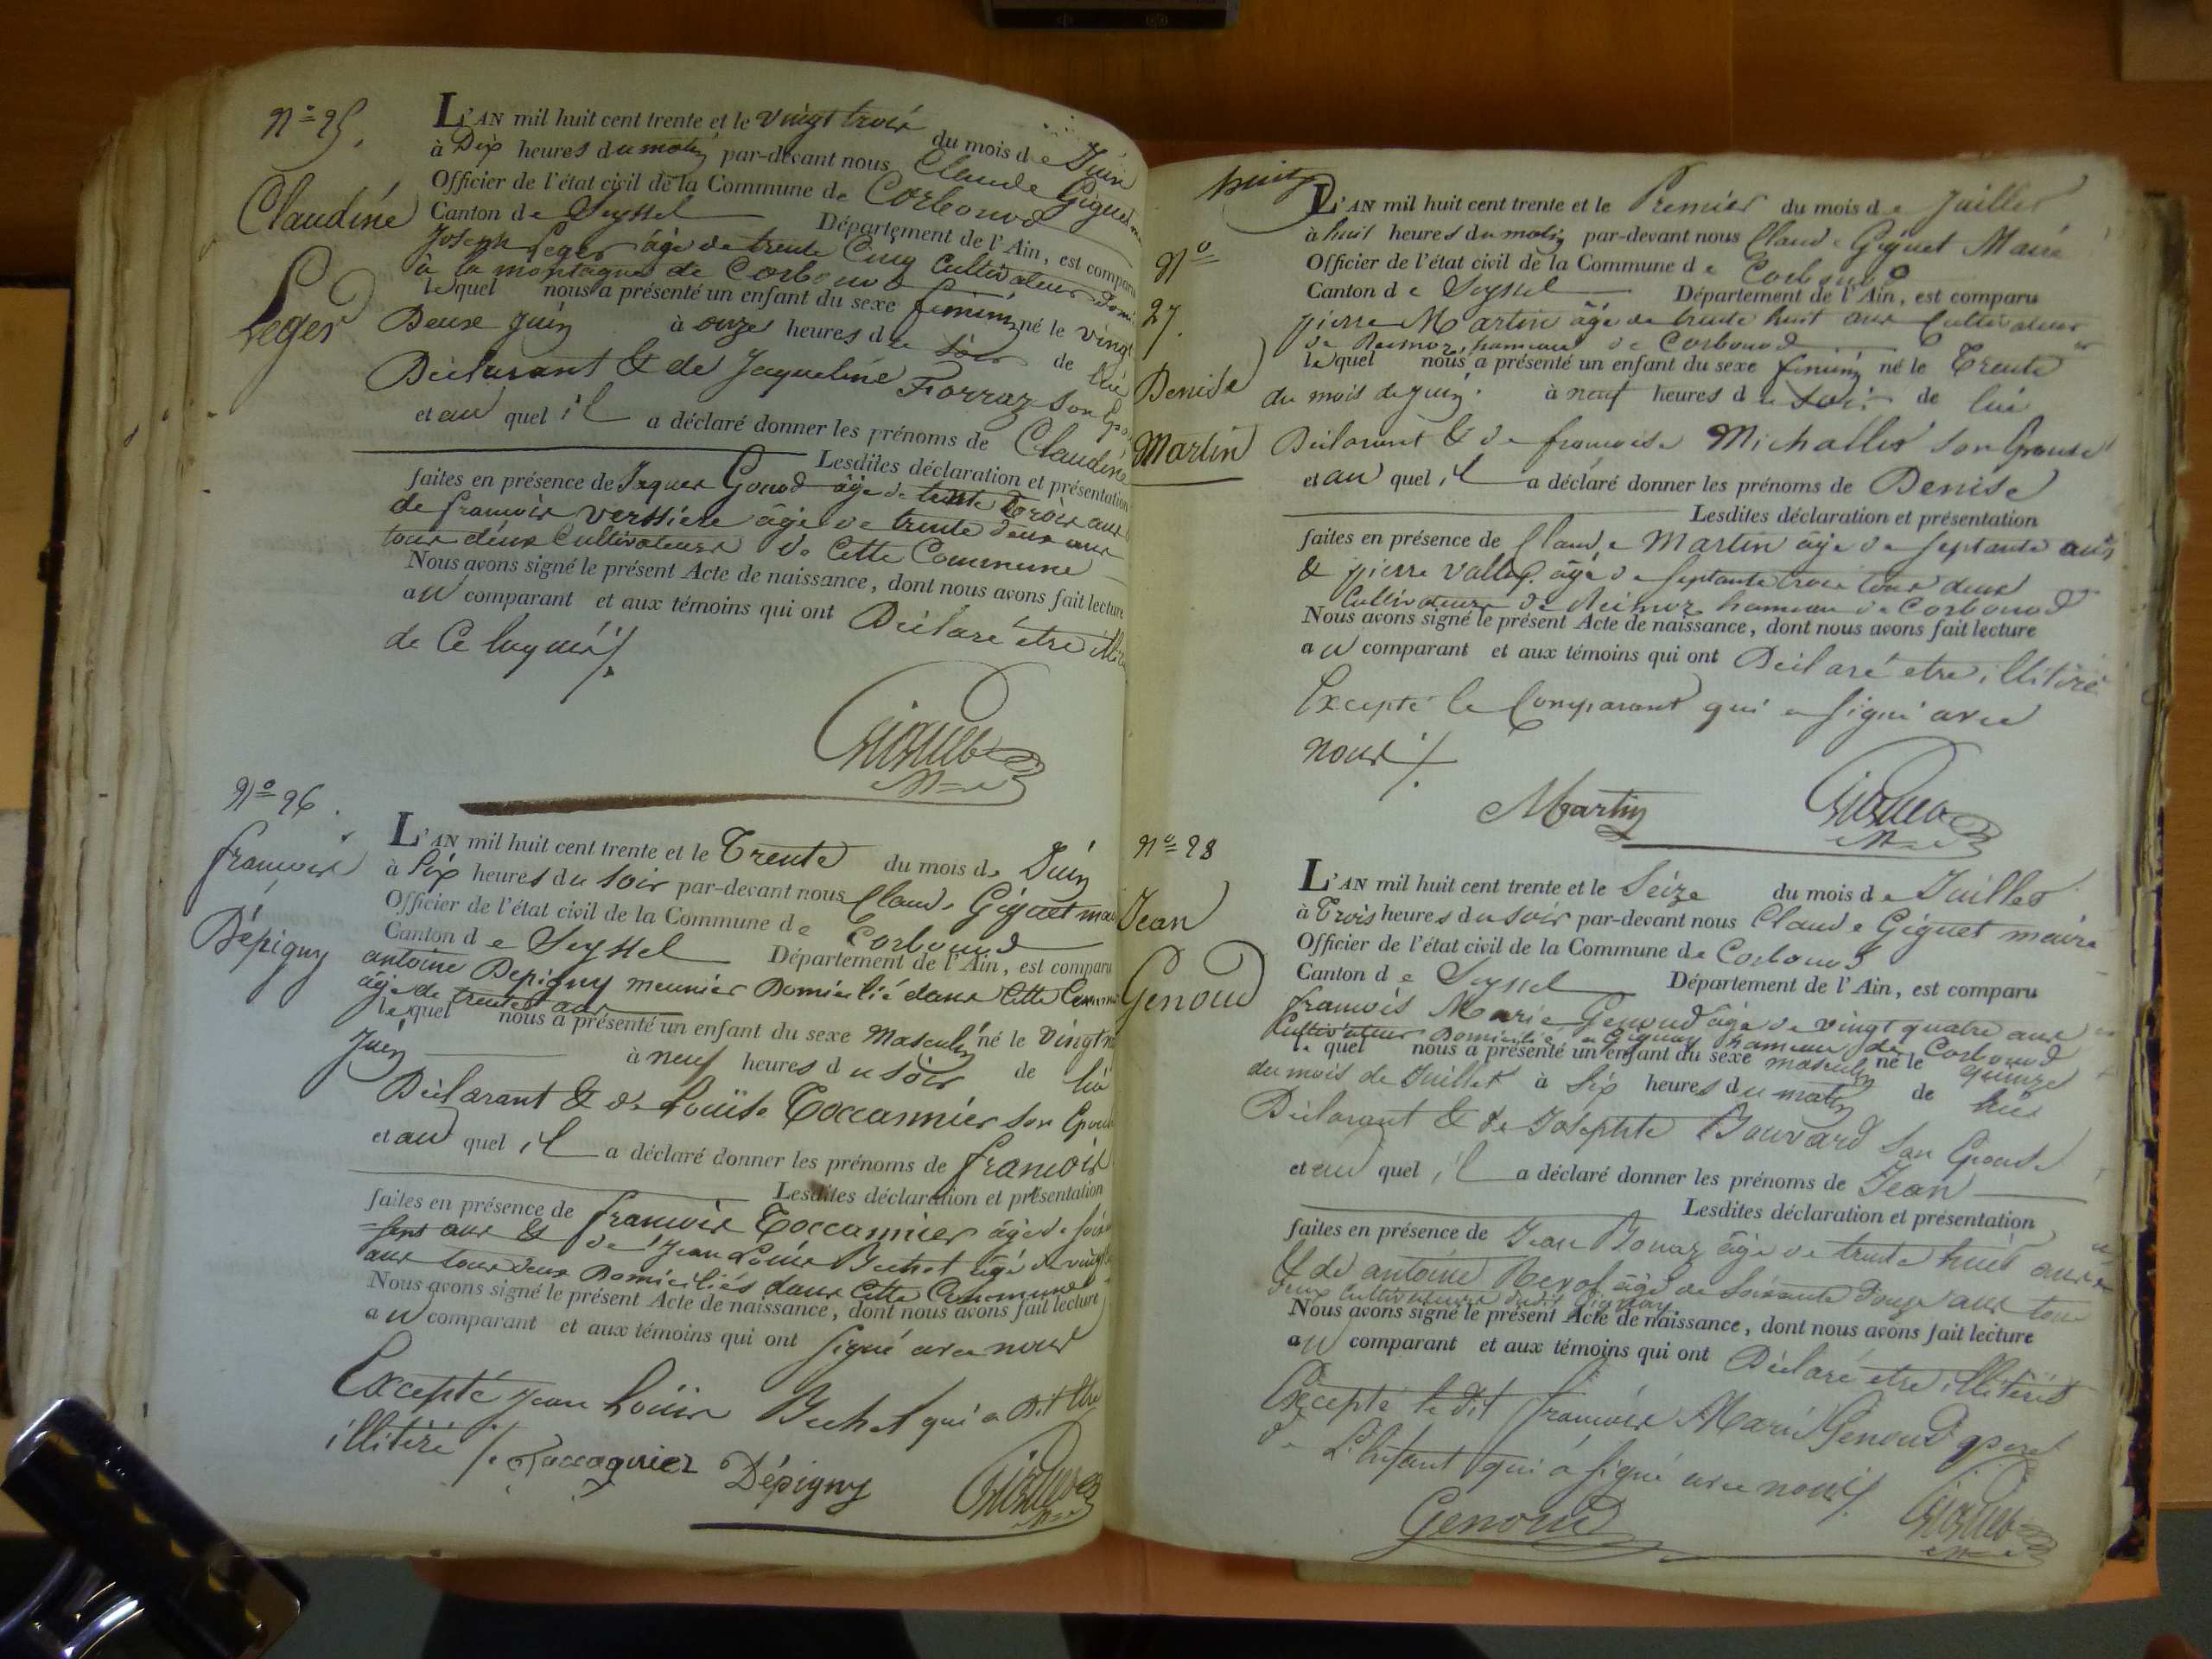 N.o 25.
Claudine
Leger
L'AN mil huit cent trente et le vingt trois du mois de Juin
à Dix heures du matin par-devant nous Claude Giguet
Officier de l'état civil de la Commune de Corbonod
Canton de Seyssel Département de l'Ain, est comparu
Joseph Leger âgé de trente Cinq Cultivateur
à la montagne de Corbonod
lequel nous a présenté un enfant du sexe féminin né le vingt
Deux juin à onze heures du soir de lui
Déclarant & de Jaqueline Forraz son
et au quel il a déclaré donner les prénoms de Claudine
Lesdites déclaration et présentation
faites en présence de Jaques Gonod âgé de trente trois ans
de francois verssiere âgé de trente deux ans
tous deux Cultivateurs de Cette Commune
Nous avons signé le présent Acte de naissance, dont nous avons fait lecture
au comparant et aux témoins qui ont Déclaré être
de Ce /.
Giguet
N.o 26.
francois
Dépigny
L'AN mil huit cent trente et le Trente du mois de Juin
à Six heures du soir par-devant nous Claude Giguet
Officier de l'état civil de la Commune de Corbonod
Canton de Seyssel Département de l'Ain, est comparu
antoine Depigny meunier Domicilié dans Cette
âgé de ans
lequel nous a présenté un enfant du sexe Masculin né le
Juin à neuf heures du soir de lui
Déclarant & de Louise Toccannier son
et au quel il a déclaré donner les prénoms de francois
Lesdites déclaration et présentation
faites en présence de francois Toccannier âgé de
sept ans & de Jean Louis Bechet âgé de
ans tous deux Domiciliés dans Cette Commune
Nous avons signé le présent Acte de naissance, dont nous avons fait lecture
au comparant et aux témoins qui ont signé avec nous
Excepté jean Louis Bechet qui a Dit être
illitéré /.
Dépigny Giguet
huit
N.o
27.
Denise
Martin
L'AN mil huit cent trente et le Premier du mois de Juillet
à huit heures du matin par-devant nous Claude Giguet Maire
Officier de l'état civil de la Commune de Corbonod
Canton de Seyssel Département de l'Ain, est comparu
pierre Martin âgé de trente huit ans Cultivateur
de hameau de Corbonod
lequel nous a présenté un enfant du sexe féminin né le Trente
du mois de juin à neuf heures du soir de lui
Déclarant & de francoise Michallet son Epouse
et au quel il a déclaré donner les prénoms de Denise
Lesdites déclaration et présentation
faites en présence de Claude Martin âgé de septante ans
& pierre âgé de septante trois tous deux
Cultivateurs de hameau de Corbonod
Nous avons signé le présent Acte de naissance, dont nous avons fait lecture
au comparant et aux témoins qui ont Déclaré etre illitéré
Excepté le Comparant qui a signé avec
nous /.
Martin Giguet
N.o 28
Jean
Genoud
L'AN mil huit cent trente et le Seize du mois de Juillet
à Trois heures du soir par-devant nous Claude Giguet maire
Officier de l'état civil de la Commune de Corbonod
Canton de Seyssel Département de l'Ain, est comparu
francois Marie Genoud âgé de vingt quatre ans
Cultivateur Domicilié a Gignay hameau de Corbonod
lequel nous a présenté un enfant du sexe masculin né le quinze
du mois de Juillet à Six heures du matin de lui
Déclarant & de Josephte Bouvard son Epouse
et au quel il a déclaré donner les prénoms de Jean
Lesdites déclaration et présentation
faites en présence de Jean âgé de trente huit ans
& de antoine âgé de soixante Douze ans tous
Deux Cultivateurs dudit Gignay
Nous avons signé le présent Acte de naissance, dont nous avons fait lecture
au comparant et aux témoins qui ont Déclaré etre illitérés
Excepté le dit francois Marie Genoud père
de L'Enfant qui a signé avec nous /.
Genoud Giguet